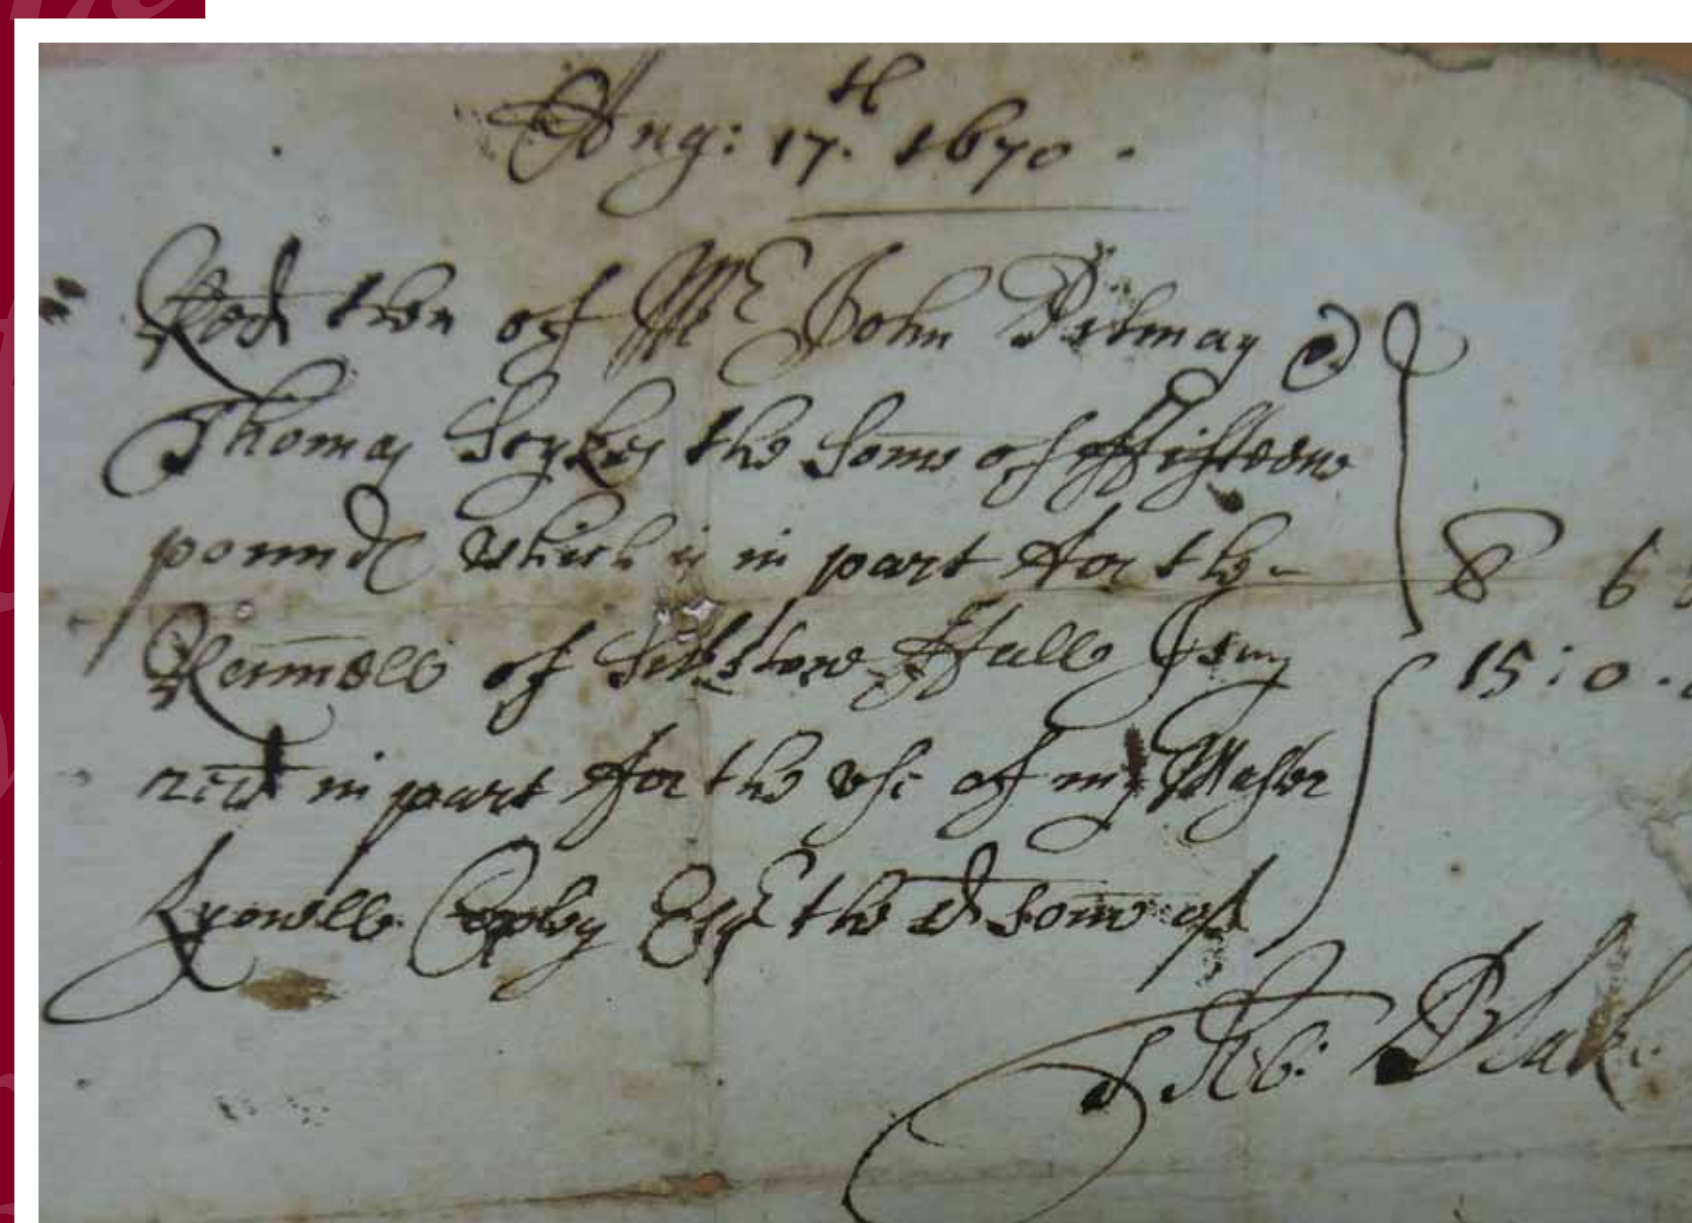 Aug: 17th. 1670.
Recd then of Mr John Pitmay &
Thomas Seykes the some of ffifteene
pounds which is in part for the
of ffall
in part for the use of my Master
Lyonell Copley Esqr the sd some of
8 6
15:0.
Blake